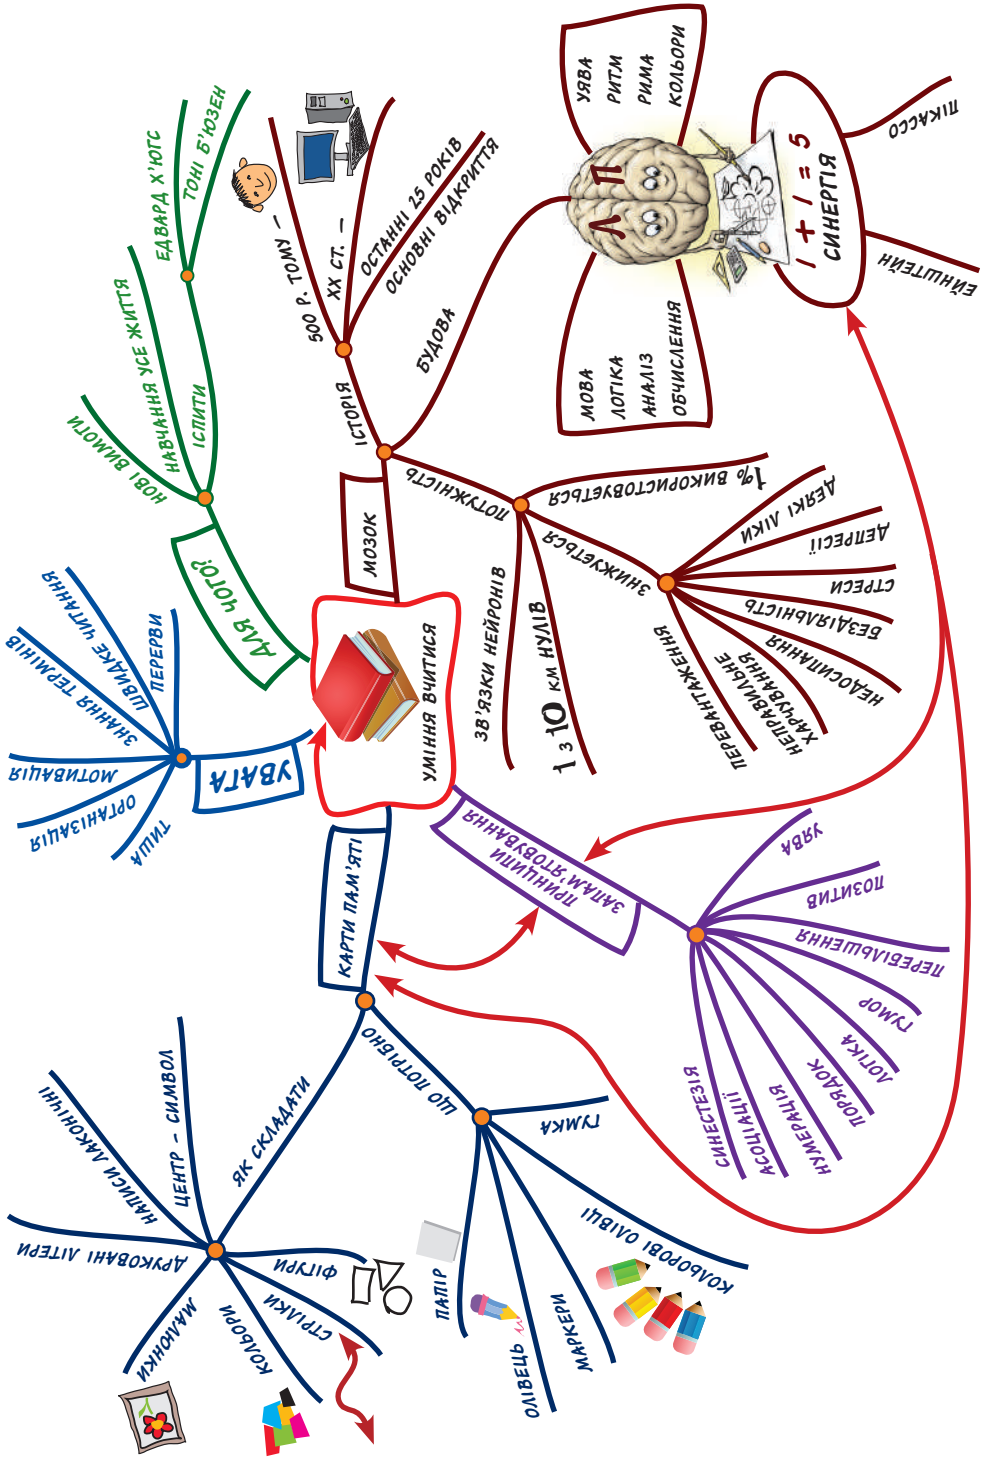 УМІННЯ ВЧИТИСЯ
ДЛЯ ЧОГО?
НОВІ ВИМОГИ
НАВЧАННЯ УСЕ ЖИТТЯ
ІСПИТИ
ЕДВАРД Х'ЮГС
ТОНІ Б'ЮЗЕН
МОЗОК
ІСТОРІЯ
500 Р. ТОМУ –
ХХ СТ. –
ОСТАННІ 25 РОКІВ
ОСНОВНІ ВІДКРИТТЯ
БУДОВА
УЯВА
РИТМ
РИМА
КОЛЬОРИ
Л П
МОВА
ЛОГІКА
АНАЛІЗ
ОБЧИСЛЕННЯ
1 + 1 = 5
СИНЕРГІЯ
ПІКАССО
ЕЙНШТЕЙН
ПОТУЖНІСТЬ
1% ВИКОРИСТОВУЄТЬСЯ
ЗНИЖУЄТЬСЯ
ДЕЯКІ ЛІКИ
ДЕПРЕСІЇ
СТРЕСИ
БЕЗДІЯЛЬНІСТЬ
НЕДОСИПАННЯ
НЕПРАВИЛЬНЕ
ХАРЧУВАННЯ
ПЕРЕВАНТАЖЕННЯ
ЗВ'ЯЗКИ НЕЙРОНІВ
1 З 10 КМ НУЛІВ
ПРИНЦИПИ
ЗАПАМ'ЯТОВУВАННЯ
УЯВА
ПОЗИТИВ
ПЕРЕБІЛЬШЕННЯ
ГУМОР
ЛОГІКА
ПОРЯДОК
НУМЕРАЦІЯ
АСОЦІАЦІЇ
СИНЕСТЕЗІЯ
КАРТИ ПАМ'ЯТІ
ЩО ПОТРІБНО
ГУМКА
КОЛЬОРОВІ ОЛІВЦІ
МАРКЕРИ
ОЛІВЕЦЬ
ПАПІР
ЯК СКЛАДАТИ
ФІГУРИ
СТРІЛКИ
КОЛЬОРИ
МАЛЮНКИ
ДРУКОВАНІ ЛІТЕРИ
НАПИСИ ЛАКОНІЧНІ
ЦЕНТР – СИМВОЛ
УВАГА
ТИША
ОРГАНІЗАЦІЯ
МОТИВАЦІЯ
ЗНАННЯ ТЕРМІНІВ
ШВИДКЕ ЧИТАННЯ
ПЕРЕРВИ